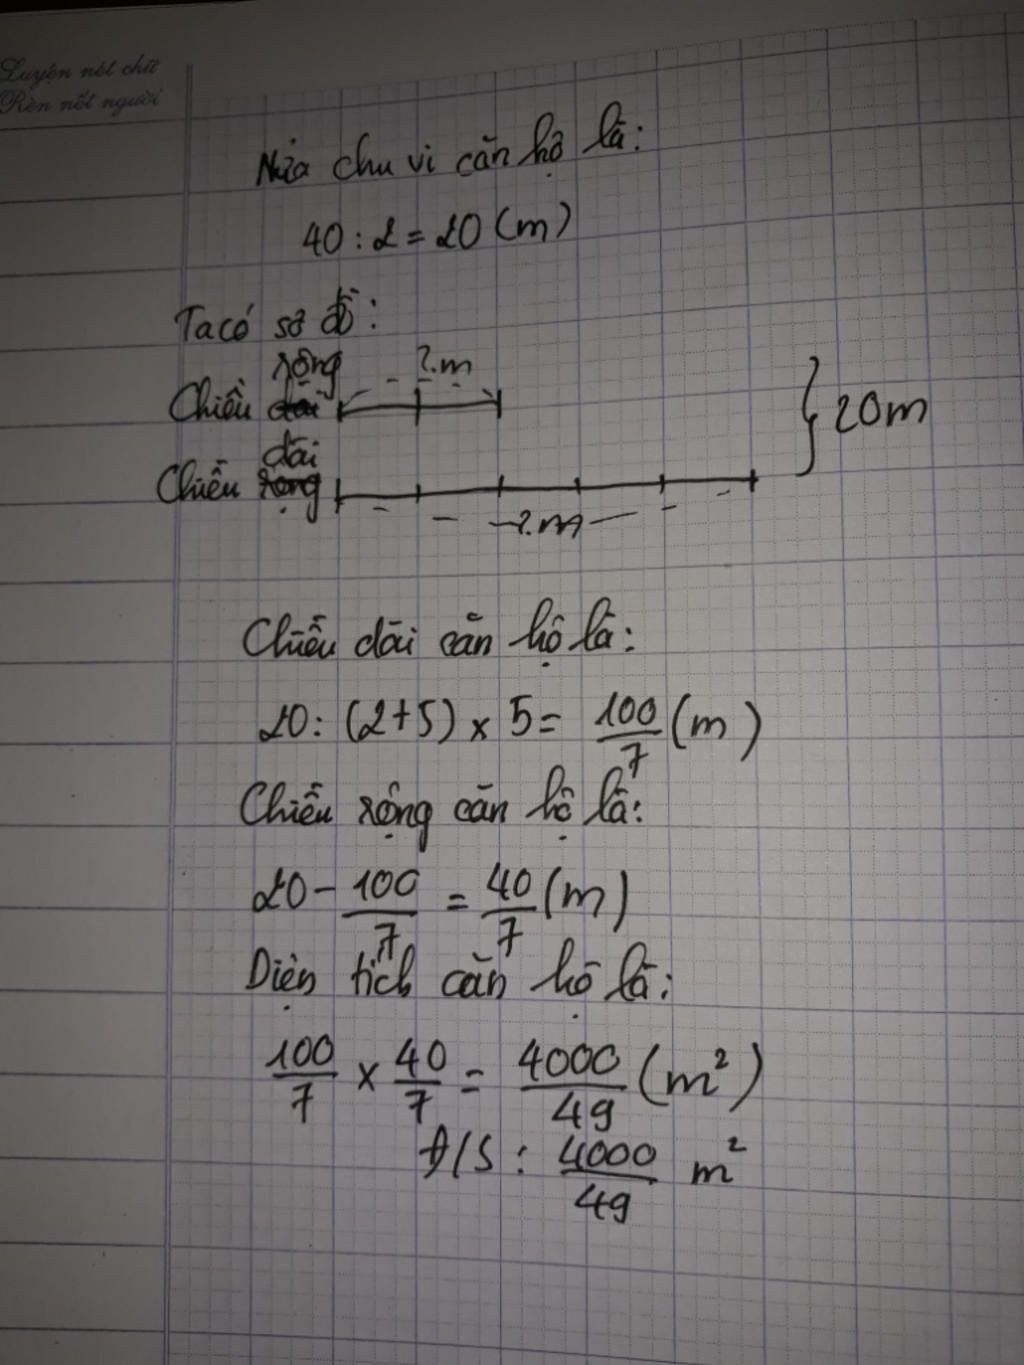 Luyện nét chữ
Rèn nết người
Nửa chu vi căn hộ là:
40 : 2 = 20 (m)
Ta có sơ đồ:
rộng ? m
Chiều dài
20m
dài
Chiều rộng
? m
Chiều dài căn hộ là:
20 : (2+5) × 5 = 100/7 (m)
Chiều rộng căn hộ là:
20 - 100/7 = 40/7 (m)
Diện tích căn hộ là:
100/7 × 40/7 = 4000/49 (m²)
Đ/S : 4000/49 m²